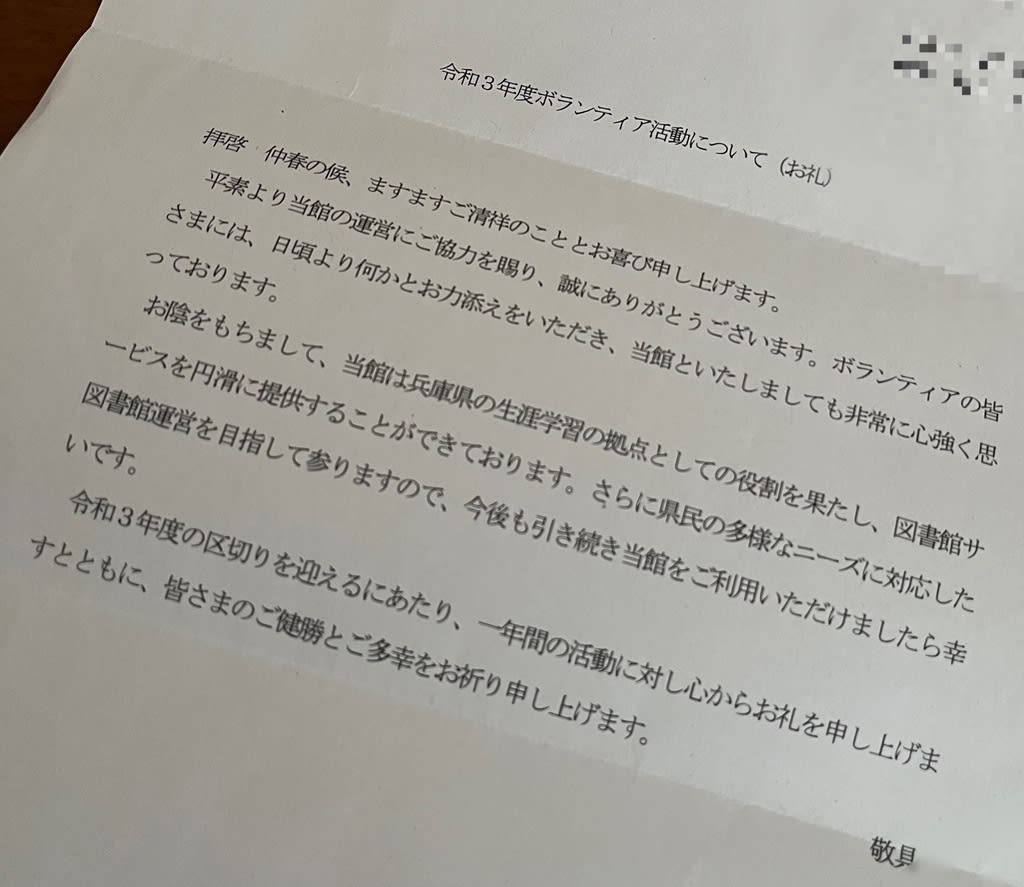 令和３年度ボランティア活動について（お礼）
拝啓　仲春の候、ますますご清祥のこととお喜び申し上げます。
平素より当館の運営にご協力を賜り、誠にありがとうございます。ボランティアの皆
さまには、日頃より何かとお力添えをいただき、当館といたしましても非常に心強く思
っております。
お陰をもちまして、当館は兵庫県の生涯学習の拠点としての役割を果たし、図書館サ
ービスを円滑に提供することができております。さらに県民の多様なニーズに対応した
図書館運営を目指して参りますので、今後も引き続き当館をご利用いただけましたら幸
いです。
令和３年度の区切りを迎えるにあたり、一年間の活動に対し心からお礼を申し上げま
すとともに、皆さまのご健勝とご多幸をお祈り申し上げます。
敬具